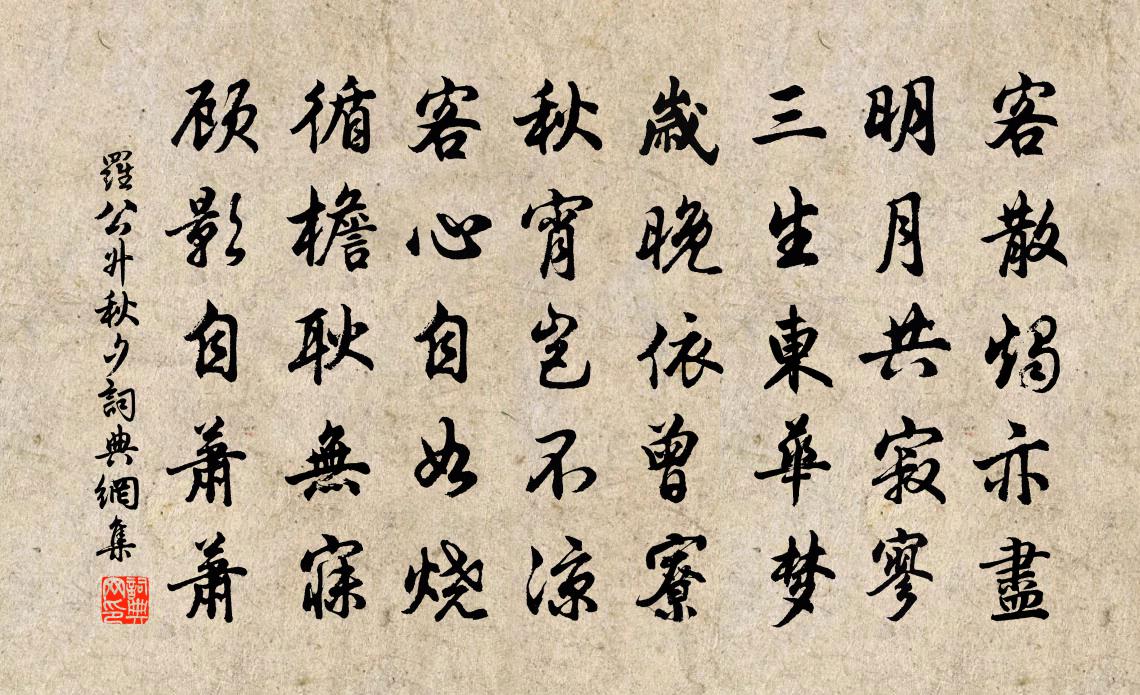 客散燭亦盡
明月共寂寥
三生東華梦
歲晚依曾寮
秋宵豈不涼
客心自如烧
循檐耿無寐
顾影自蕭蕭
羅公升秋夕詞典網集
詞典網印